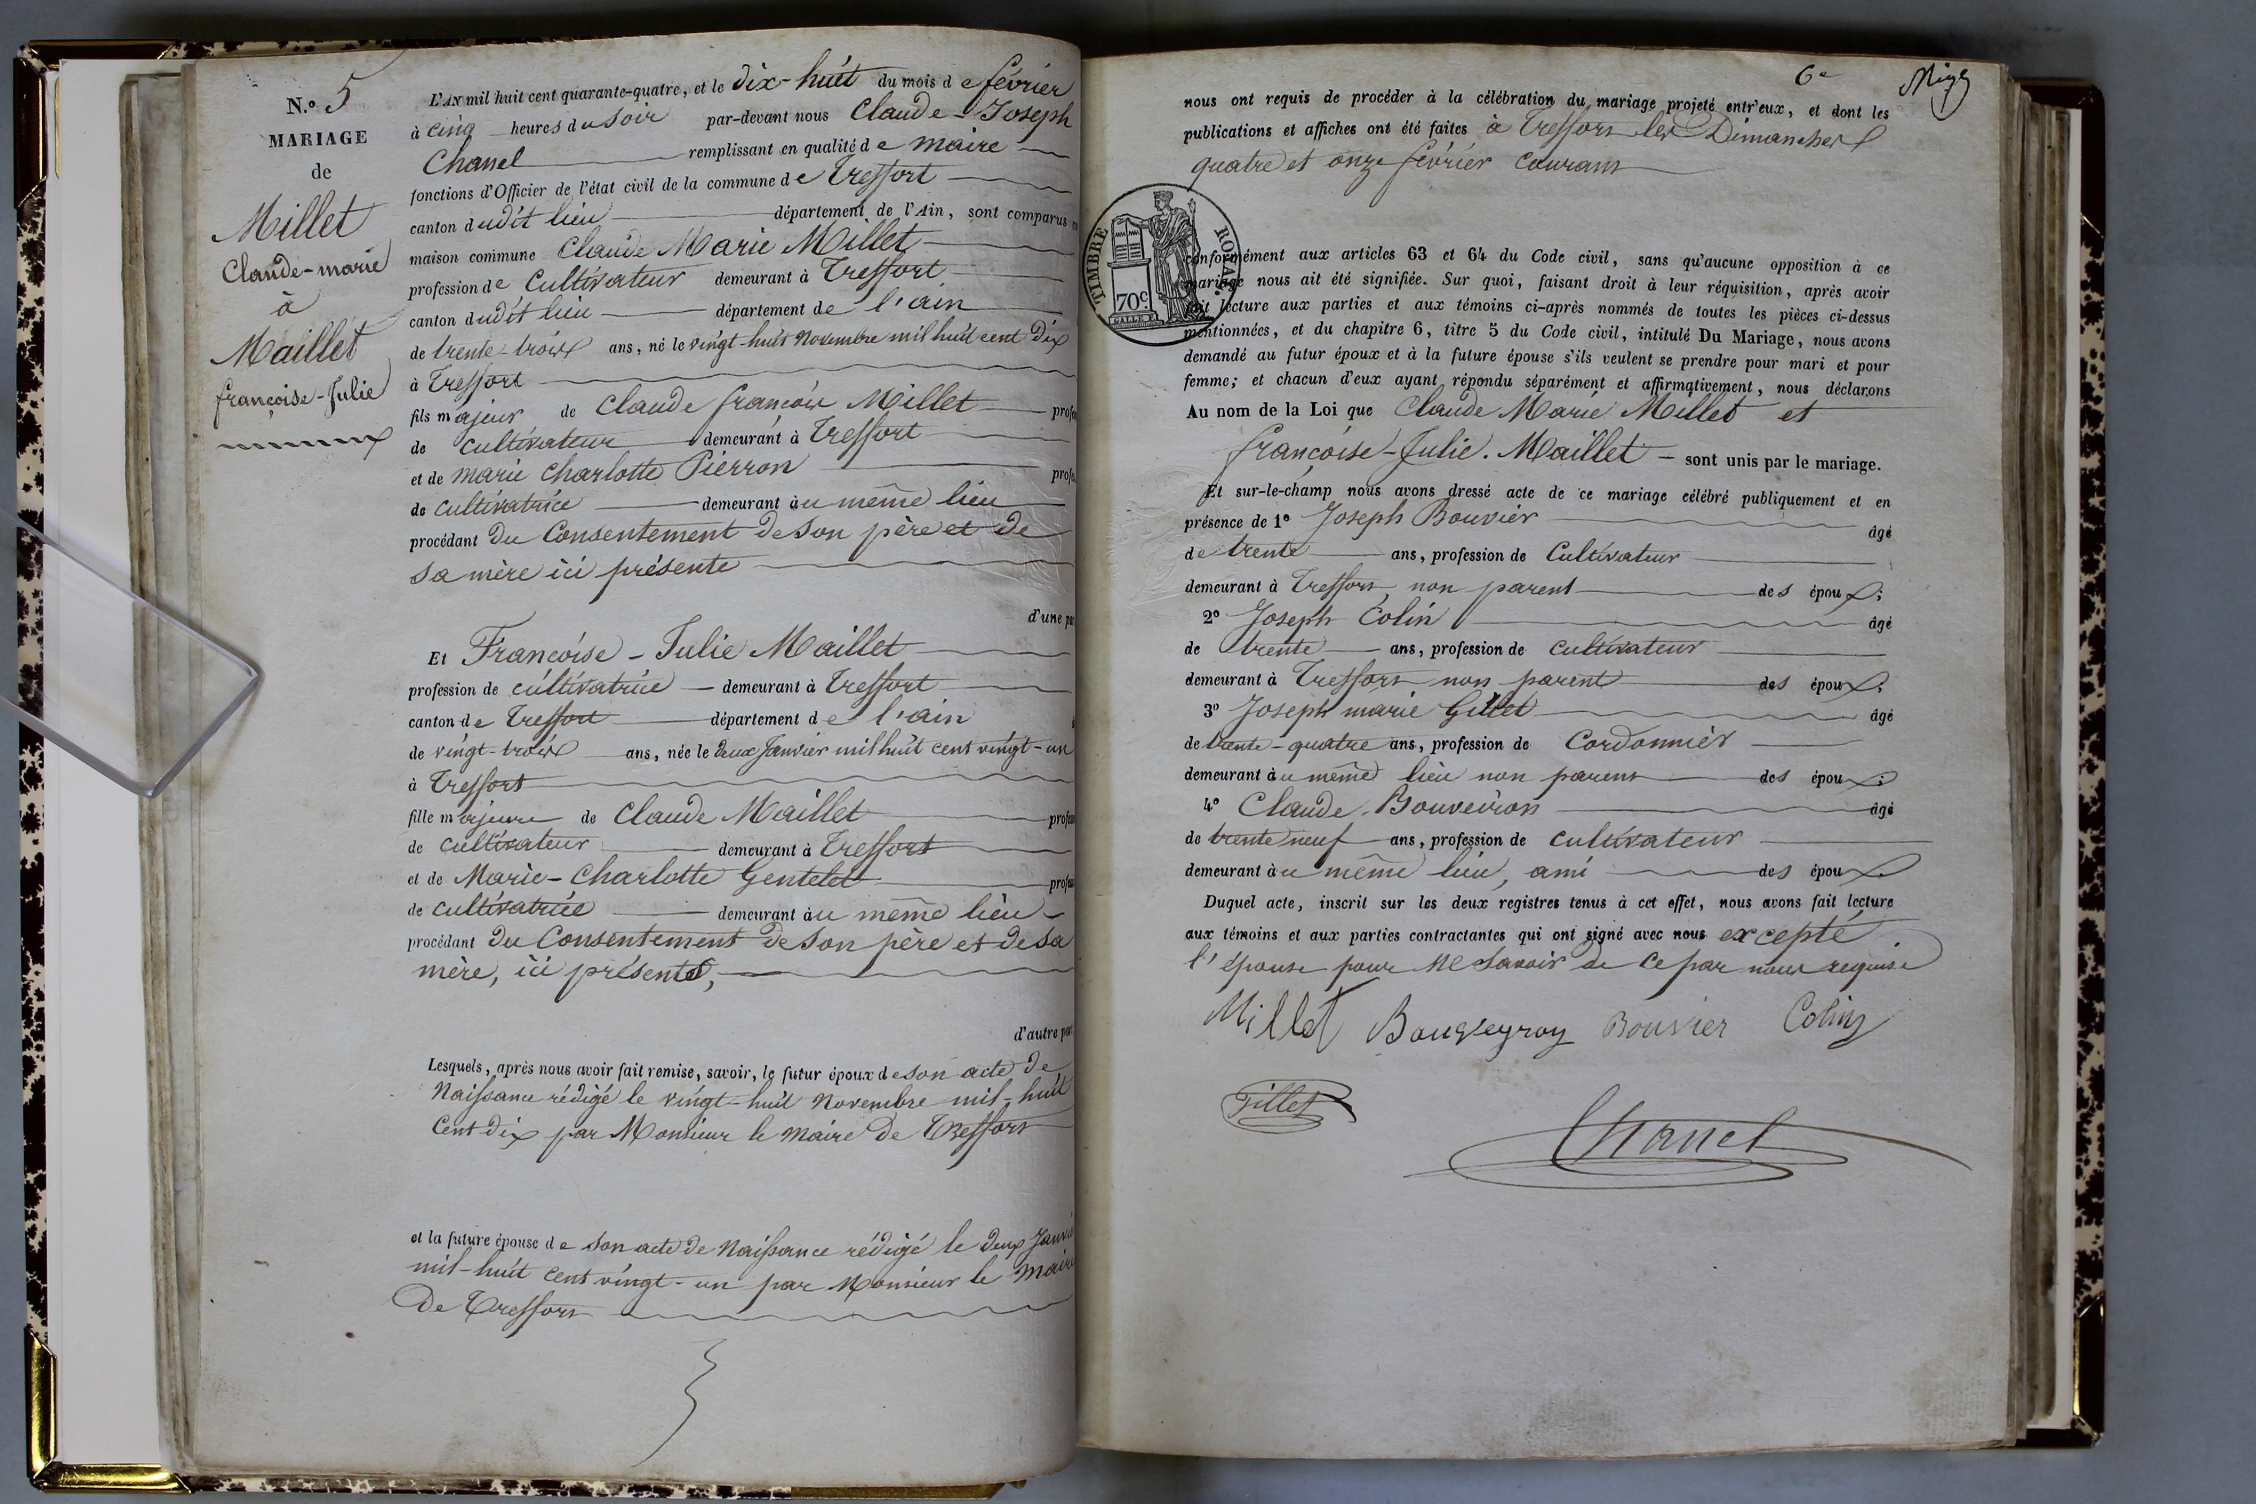 N.º 5
MARIAGE
de
Millet
Claude-marie
à
Maillet
françoise-Julie
L'AN mil huit cent quarante-quatre, et le dix-huit du mois de février
à cinq heures du soir par-devant nous Claude Joseph
Chanel remplissant en qualité de maire
fonctions d'Officier de l'état civil de la commune de Treffort
canton dudit lieu département de l'Ain, sont comparus en
maison commune Claude Marie Millet
profession de Cultivateur demeurant à Treffort
canton dudit lieu département de l'ain
de trente-trois ans, né le vingt-huit Novembre mil huit cent Dix
à Treffort
fils majeur de Claude françois Millet profes
de Cultivateur demeurant à Treffort
et de marie Charlotte Pierron profes
de cultivatrice demeurant au même lieu
procédant Du Consentement De son père et De
sa mère ici présente
d'une par
Et Françoise-Julie Maillet
profession de cultivatrice demeurant à Treffort
canton de Treffort département de l'ain
de vingt-trois ans, née le deux Janvier mil huit cent vingt-un
à Treffort
fille majeure de Claude Maillet profess
de cultivateur demeurant à Treffort
et de Marie-Charlotte Gentelet profess
de cultivatrice demeurant au même lieu
procédant Du Consentement De Son père et de sa
mère, ici présents,
d'autre par
Lesquels, après nous avoir fait remise, savoir, le futur époux de son acte De
Naissance rédigé le vingt-huit Novembre mil-huit
Cent Dix par Monsieur le Maire De Treffort
et la future épouse de son acte De Naissance rédigé le deux Janvi
mil-huit cent vingt-un par Monsieur le Maire
De Treffort
6e
nous ont requis de procéder à la célébration du mariage projeté entr'eux, et dont les
publications et affiches ont été faites à Treffort les Dimanches
quatre et onze février courant
TIMBRE ROYAL
70c
conformément aux articles 63 et 64 du Code civil, sans qu'aucune opposition à ce
mariage nous ait été signifiée. Sur quoi, faisant droit à leur réquisition, après avoir
fait lecture aux parties et aux témoins ci-après nommés de toutes les pièces ci-dessus
mentionnées, et du chapitre 6, titre 5 du Code civil, intitulé Du Mariage, nous avons
demandé au futur époux et à la future épouse s'ils veulent se prendre pour mari et pour
femme; et chacun d'eux ayant répondu séparément et affirmativement, nous déclarons
Au nom de la Loi que Claude Marie Millet et
françoise-Julie. Maillet sont unis par le mariage.
Et sur-le-champ nous avons dressé acte de ce mariage célébré publiquement et en
présence de 1º Joseph Bouvier âgé
de trente ans, profession de Cultivateur
demeurant à Treffort, non parent des époux;
2º Joseph Colin âgé
de trente ans, profession de cultivateur
demeurant à Treffort non parent des époux;
3º Joseph marie Gillet âgé
de trente-quatre ans, profession de Cordonnier
demeurant au même lieu non parent des époux;
4º Claude Bouveiron âgé
de trente neuf ans, profession de cultivateur
demeurant au même lieu, ami des époux.
Duquel acte, inscrit sur les deux registres tenus à cet effet, nous avons fait lecture
aux témoins et aux parties contractantes qui ont signé avec nous excepté
l'épouse pour Ne Savoir de ce par nous requise
Millet Bouveyron Bouvier Colin
Gillet
Chanel